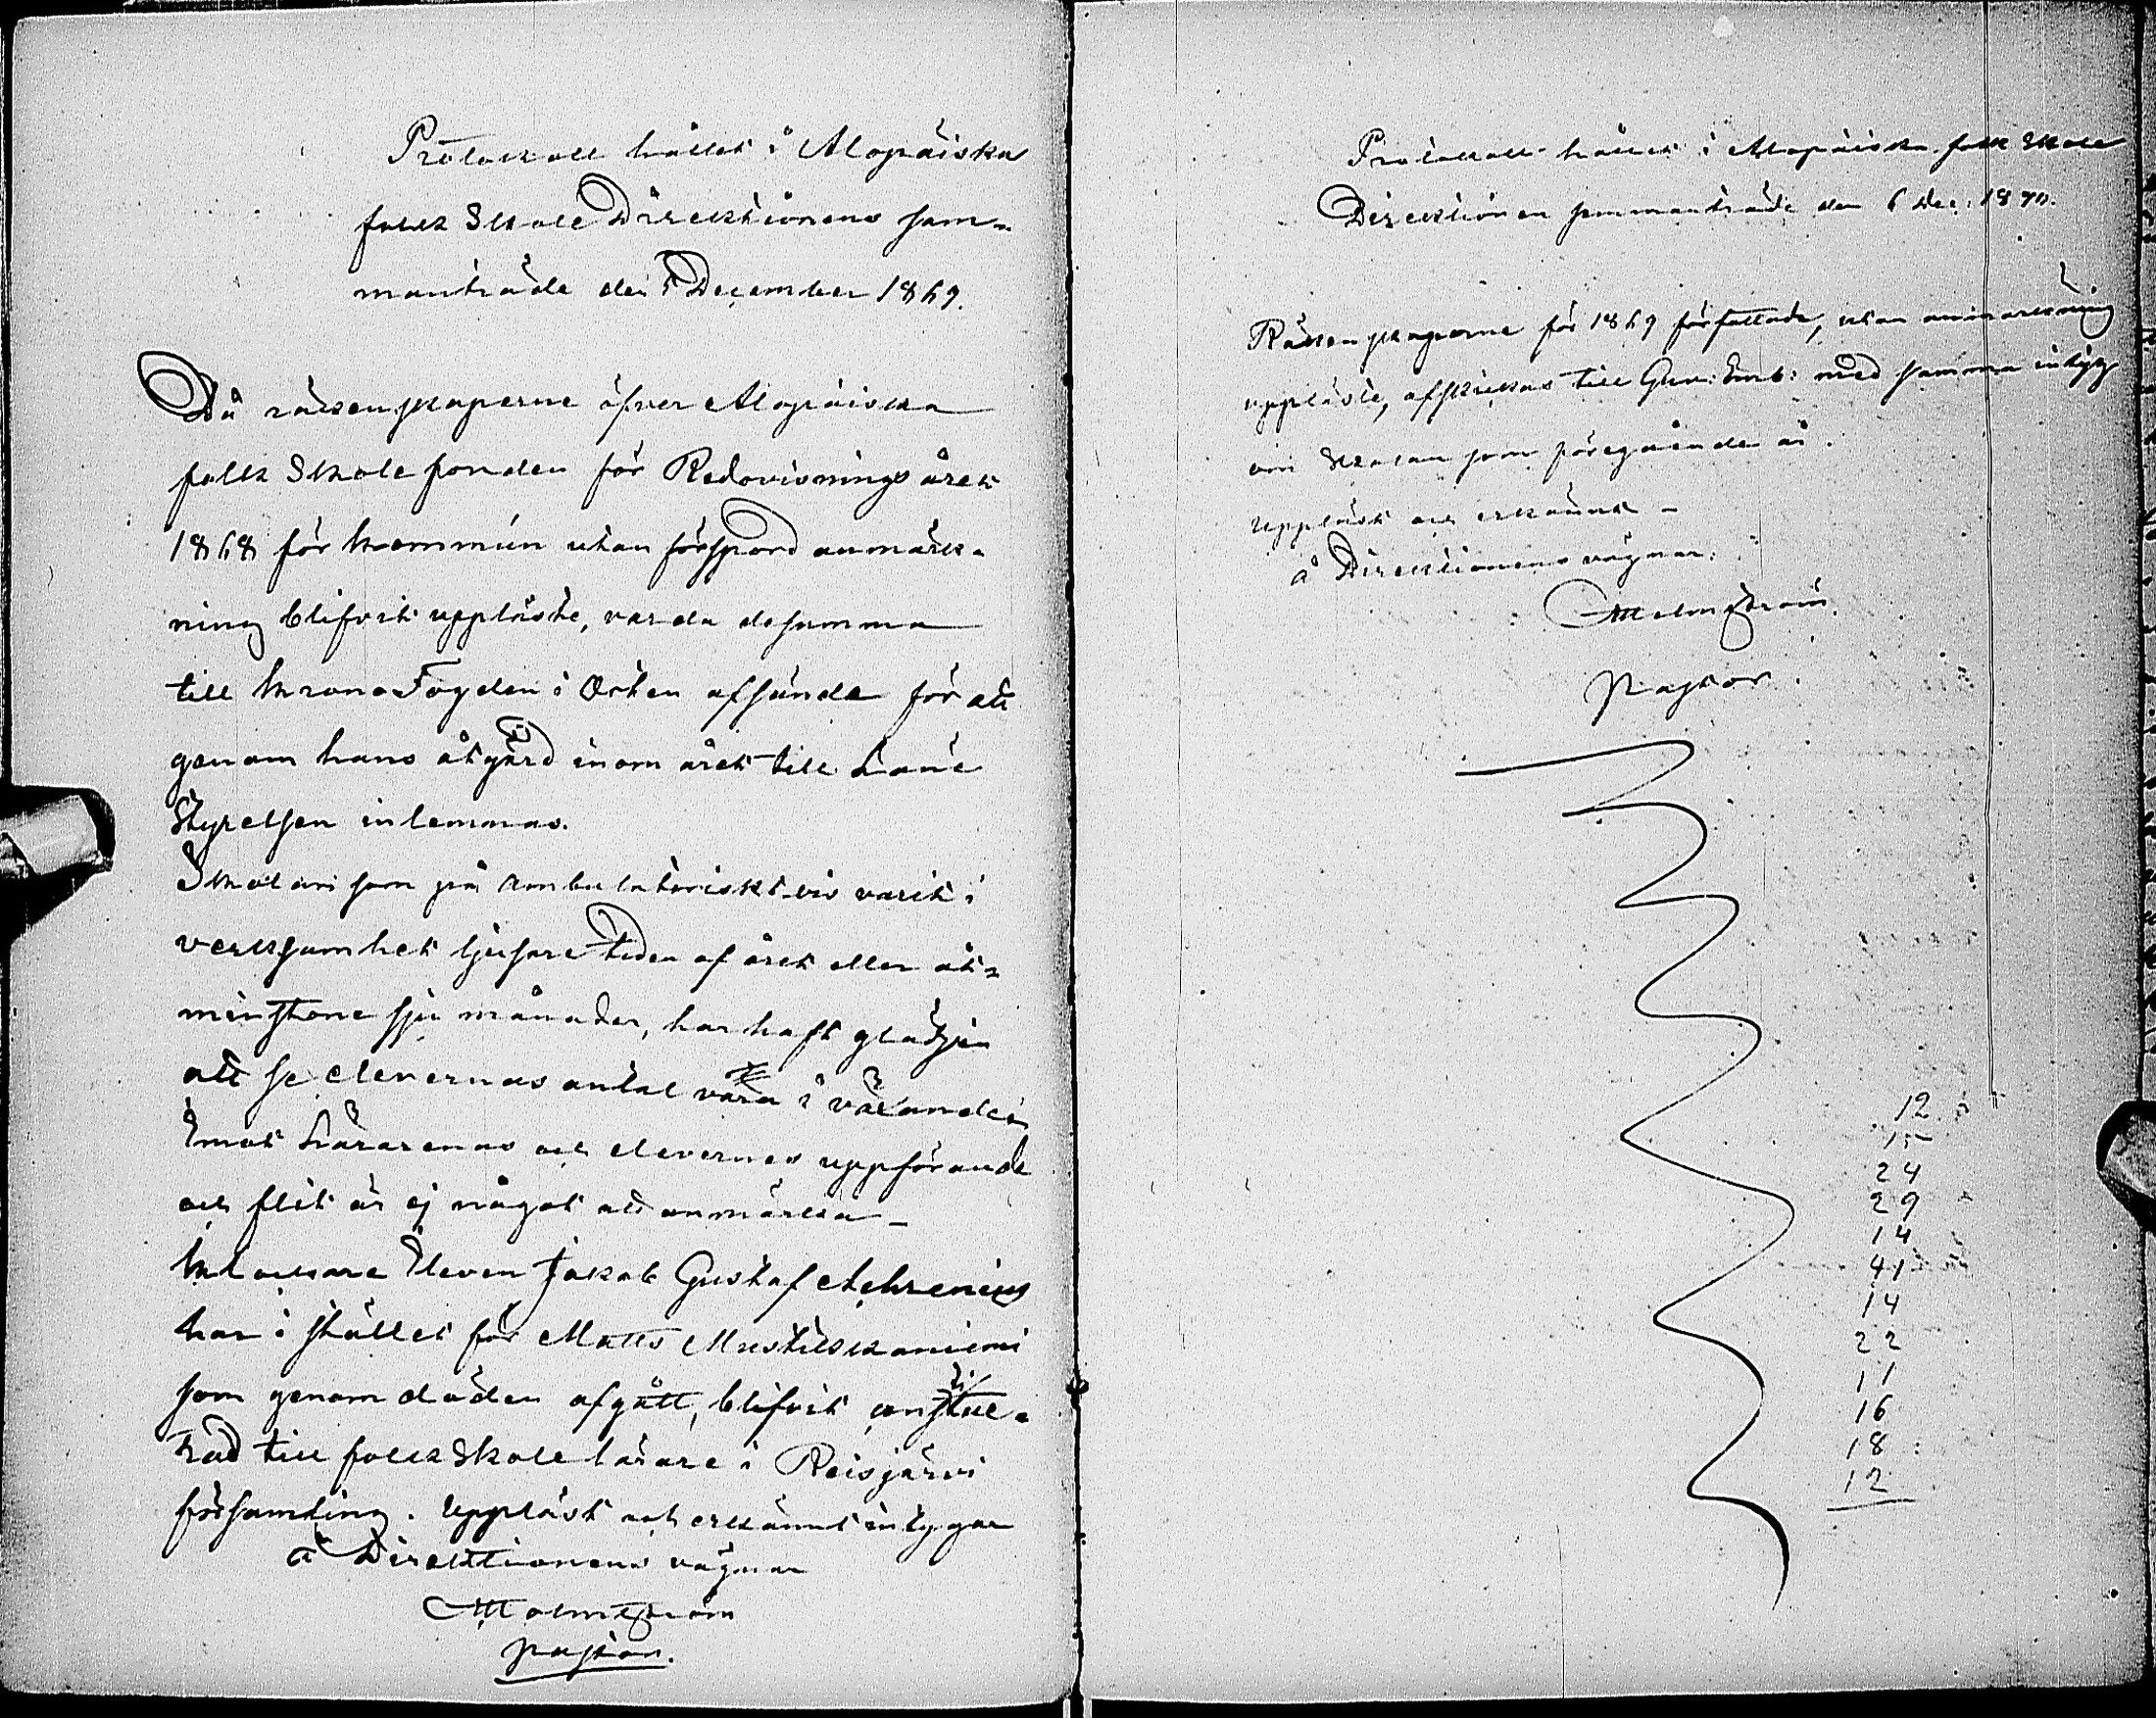 Protokoll hållet i Alopäiska
folk Skole Direktionens sam-
manträde den 5 December 1869.
Då räkenskaperne öfver Alopäiska
folk Skole fonden för Redovisnings året
1868 för kommun utan förspord anmärk-
ning blifvit uppläste, varda desamma
till krono Fogden i Orten afsända för att
genom hans åtgärd inom året till Läne
Styrelsen inlemnas.
Skolan som på ambulatoriskt vis varit i
verksamhet ljusare tiden af året eller åt-
minstone sju månader, har haft glädjen
att se elevernas antal vara i växande.
Emot Lärarenas och elevernes uppförande
och flit är ej något att anmärka –
Klockare Eleven Jakob Gustaf Lehrenius
har i stället för Matts
som genom döden afgått, blifvit constitue-
rad till folk Skole lärare i Reisjärvi
församling. Uppläst och erkänt intygar
å Direktionens vägnar
Malmström
pastor.
Protokoll hållet i Alopäiska folk Skole
Direktionen sammanträde den 6 Dec: 1870.
Räkenskaperne för 1869 författade, utan anmärkning
uppläste, afskickas till Guv: Emb: med samma intyg
om Skolan som föregående år.
Uppläst och erkänt –
å Direktionens vägnar:
Malmström
Pastor.
12
15
24
29
14
41
14
22
11
16
18
12